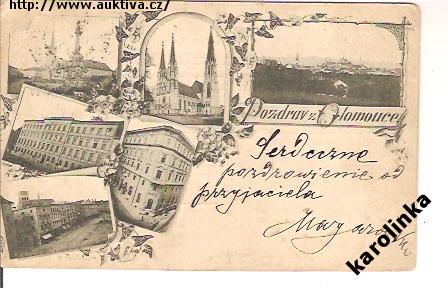 http://www.auktiva.cz/
Pozdrav z Olomouce
Serdeczne
pozdrowienie od
przyjaciela
karolinka